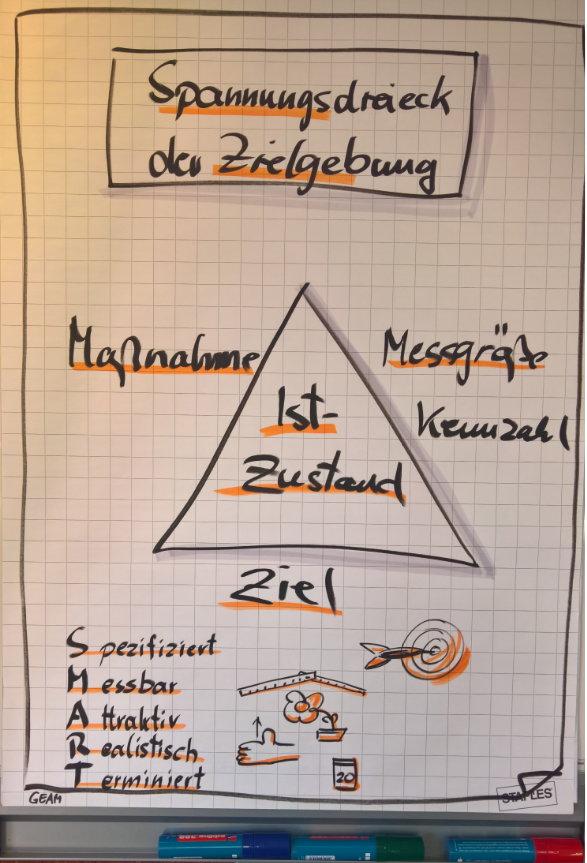 Spannungsdreieck
der Zielgebung
Maßnahme
Messgröße
Kennzahl
Ist-
Zustand
Ziel
Spezifiziert
Messbar
Attraktiv
Realistisch
Terminiert
20
GEAH
STAPLES